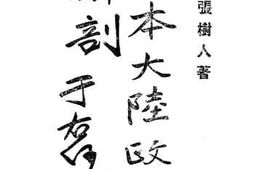 張樹人著
本大陸政
剖于右任